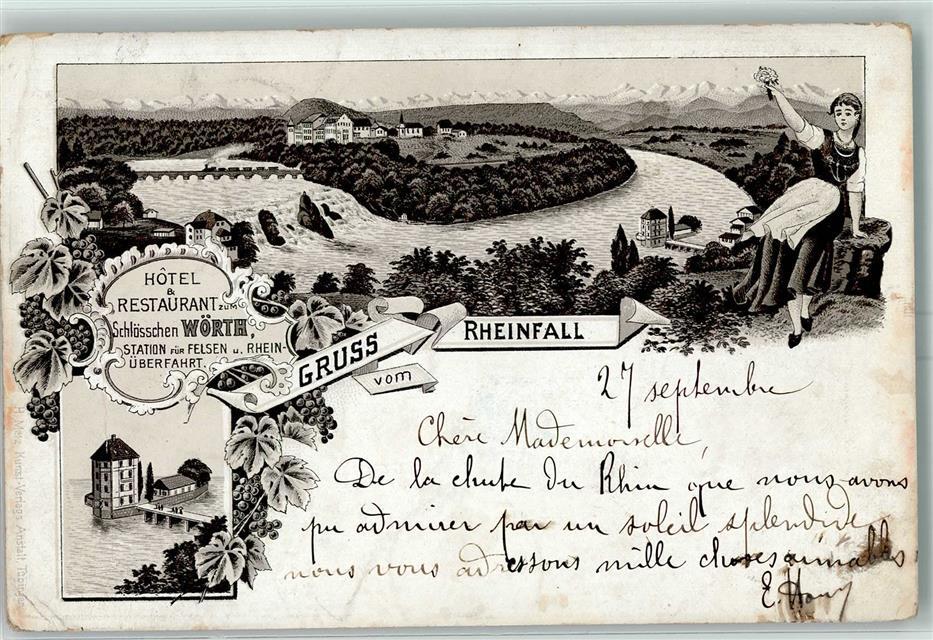 HÔTEL
&
RESTAURANT ZUM
Schlösschen WÖRTH
STATION FÜR FELSEN u. RHEIN-
ÜBERFAHRT.
GRUSS
vom
RHEINFALL
27 septembre
Chère Mademoiselle,
De la chute du Rhin que nous avons
pu admirer par un soleil splendide
nous vous adressons mille choses aimables
E.
H. Metz, Kunst-Verlags-Anstalt